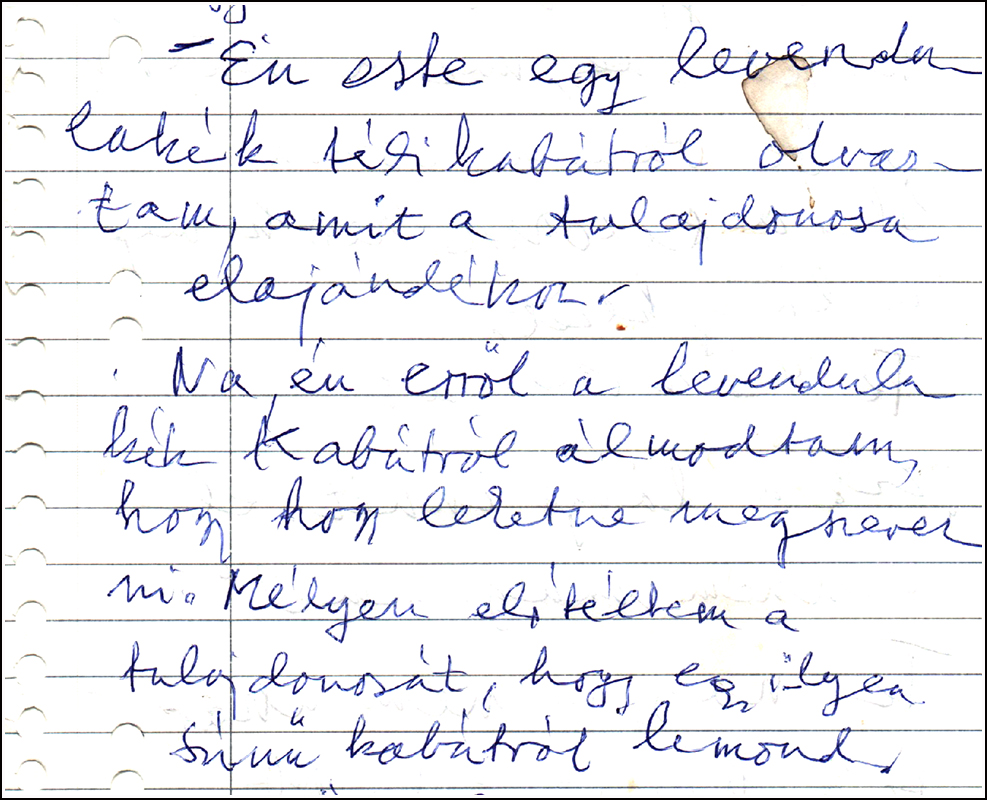 - Én este egy levendu
lakék télikabátról olvas-
tam, amit a tulajdonosa
elajándékoz.
Na én erről a levendula
kék kabátról álmodtam,
hogy hogy lehetne megszerez
ni. Mélyen elítéltem a
tulajdonosát, hogy egy ilyen
színű kabátról lemond.